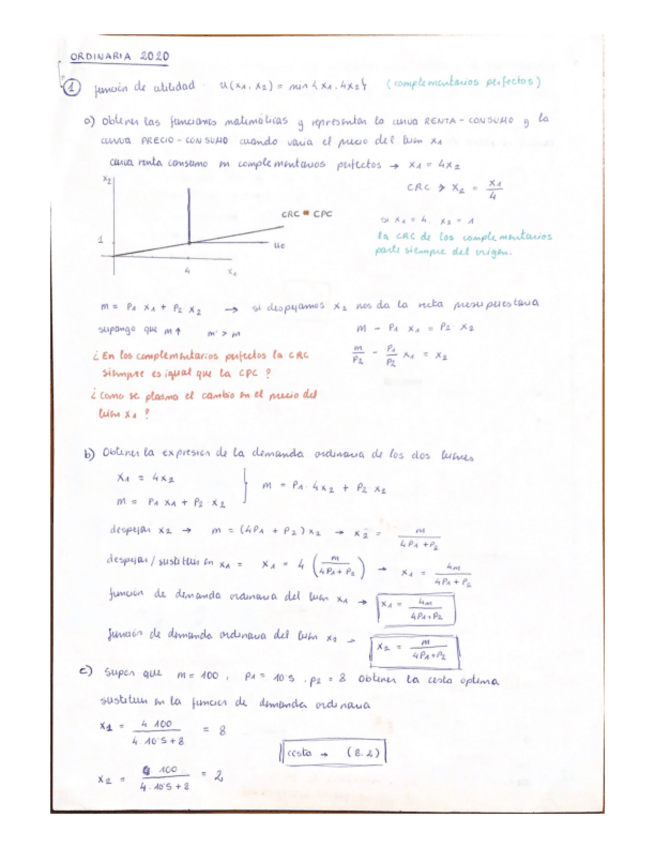 ORDINARIA 2020
① función de utilidad · u(x₁, x₂) = min {x₁, 4x₂} (complementarios perfectos)
a) Obtener las funciones matemáticas y representar la curva RENTA-CONSUMO y la
curva PRECIO-CONSUMO cuando varia el precio del bien x₁
curva renta consumo en complementarios perfectos → x₁ = 4x₂
CRC → x₂ = x₁/4
x₂
CRC = CPC
1
uo
4
x₁
si x₁ = 4, x₂ = 1
la CRC de los complementarios
parte siempre del origen.
m = P₁ x₁ + P₂ x₂ → si despejamos x₂ nos da la recta presupuestaria
supongo que m↑ m' > m
m - P₁ x₁ = P₂ · x₂
m/P₂ - P₁/P₂ x₁ = x₂
¿En los complementarios perfectos la CRC
siempre es igual que la CPC?
¿Como se plasma el cambio en el precio del
bien x₁?
b) Obtener la expresion de la demanda ordinaria de los dos bienes
x₁ = 4x₂
m = P₁ x₁ + P₂ · x₂
m = P₁ · 4x₂ + P₂ x₂
despejar x₂ → m = (4P₁ + P₂) x₂ → x₂ = m/(4P₁+P₂)
despejar/sustituir en x₁ = x₁ = 4 (m/(4P₁+P₂)) → x₁ = 4m/(4P₁+P₂)
funcion de demanda ordinaria del bien x₁ → x₁ = 4m/(4P₁+P₂)
función de demanda ordinaria del bien x₂ → x₂ = m/(4P₁+P₂)
c) Supon que m = 100, p₁ = 10'5, p₂ = 8 obtener la cesta optima
sustituir en la funcion de demanda ordinaria
x₁ = 4·100/(4·10'5+8) = 8
cesta → (8,2)
x₂ = 100/(4·10'5+8) = 2